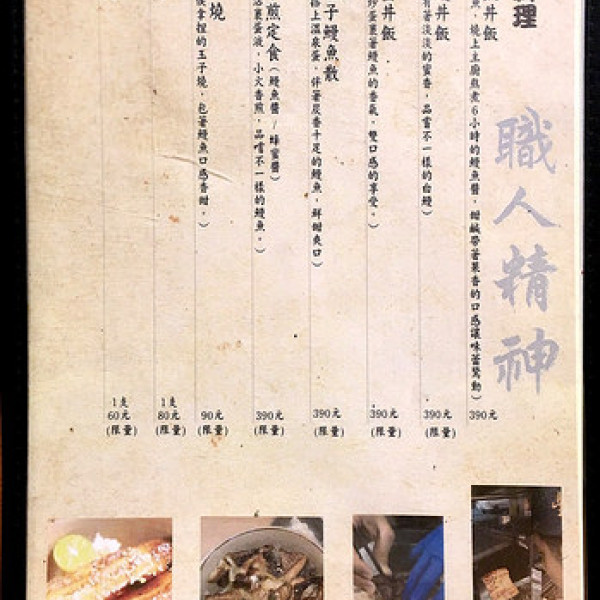 理
職人精神
丼飯
魚，燒上主廚熬煮6小時的鰻魚醬，甜鹹帶著果香的口感讓味蕾驚動）
390元
丼飯
有著淡淡的蜜香，品嘗不一樣的白鰻）
390元
（限量）
丼飯
炒蛋裹著鰻魚的香氣，雙口感的享受。）
390元
（限量）
子鰻魚散
搭上溫泉蛋，伴著炭香十足的鰻魚，鮮甜爽口）
390元
（限量）
煎定食（鰻魚醬/蜂蜜醬）
裹蛋液，小火香煎，品嚐不一樣的鰻魚。）
390元
（限量）
燒
拿捏的玉子燒，包著鰻魚口感香甜。）
90元
（限量）
1支
80元
（限量）
1支
60元
（限量）